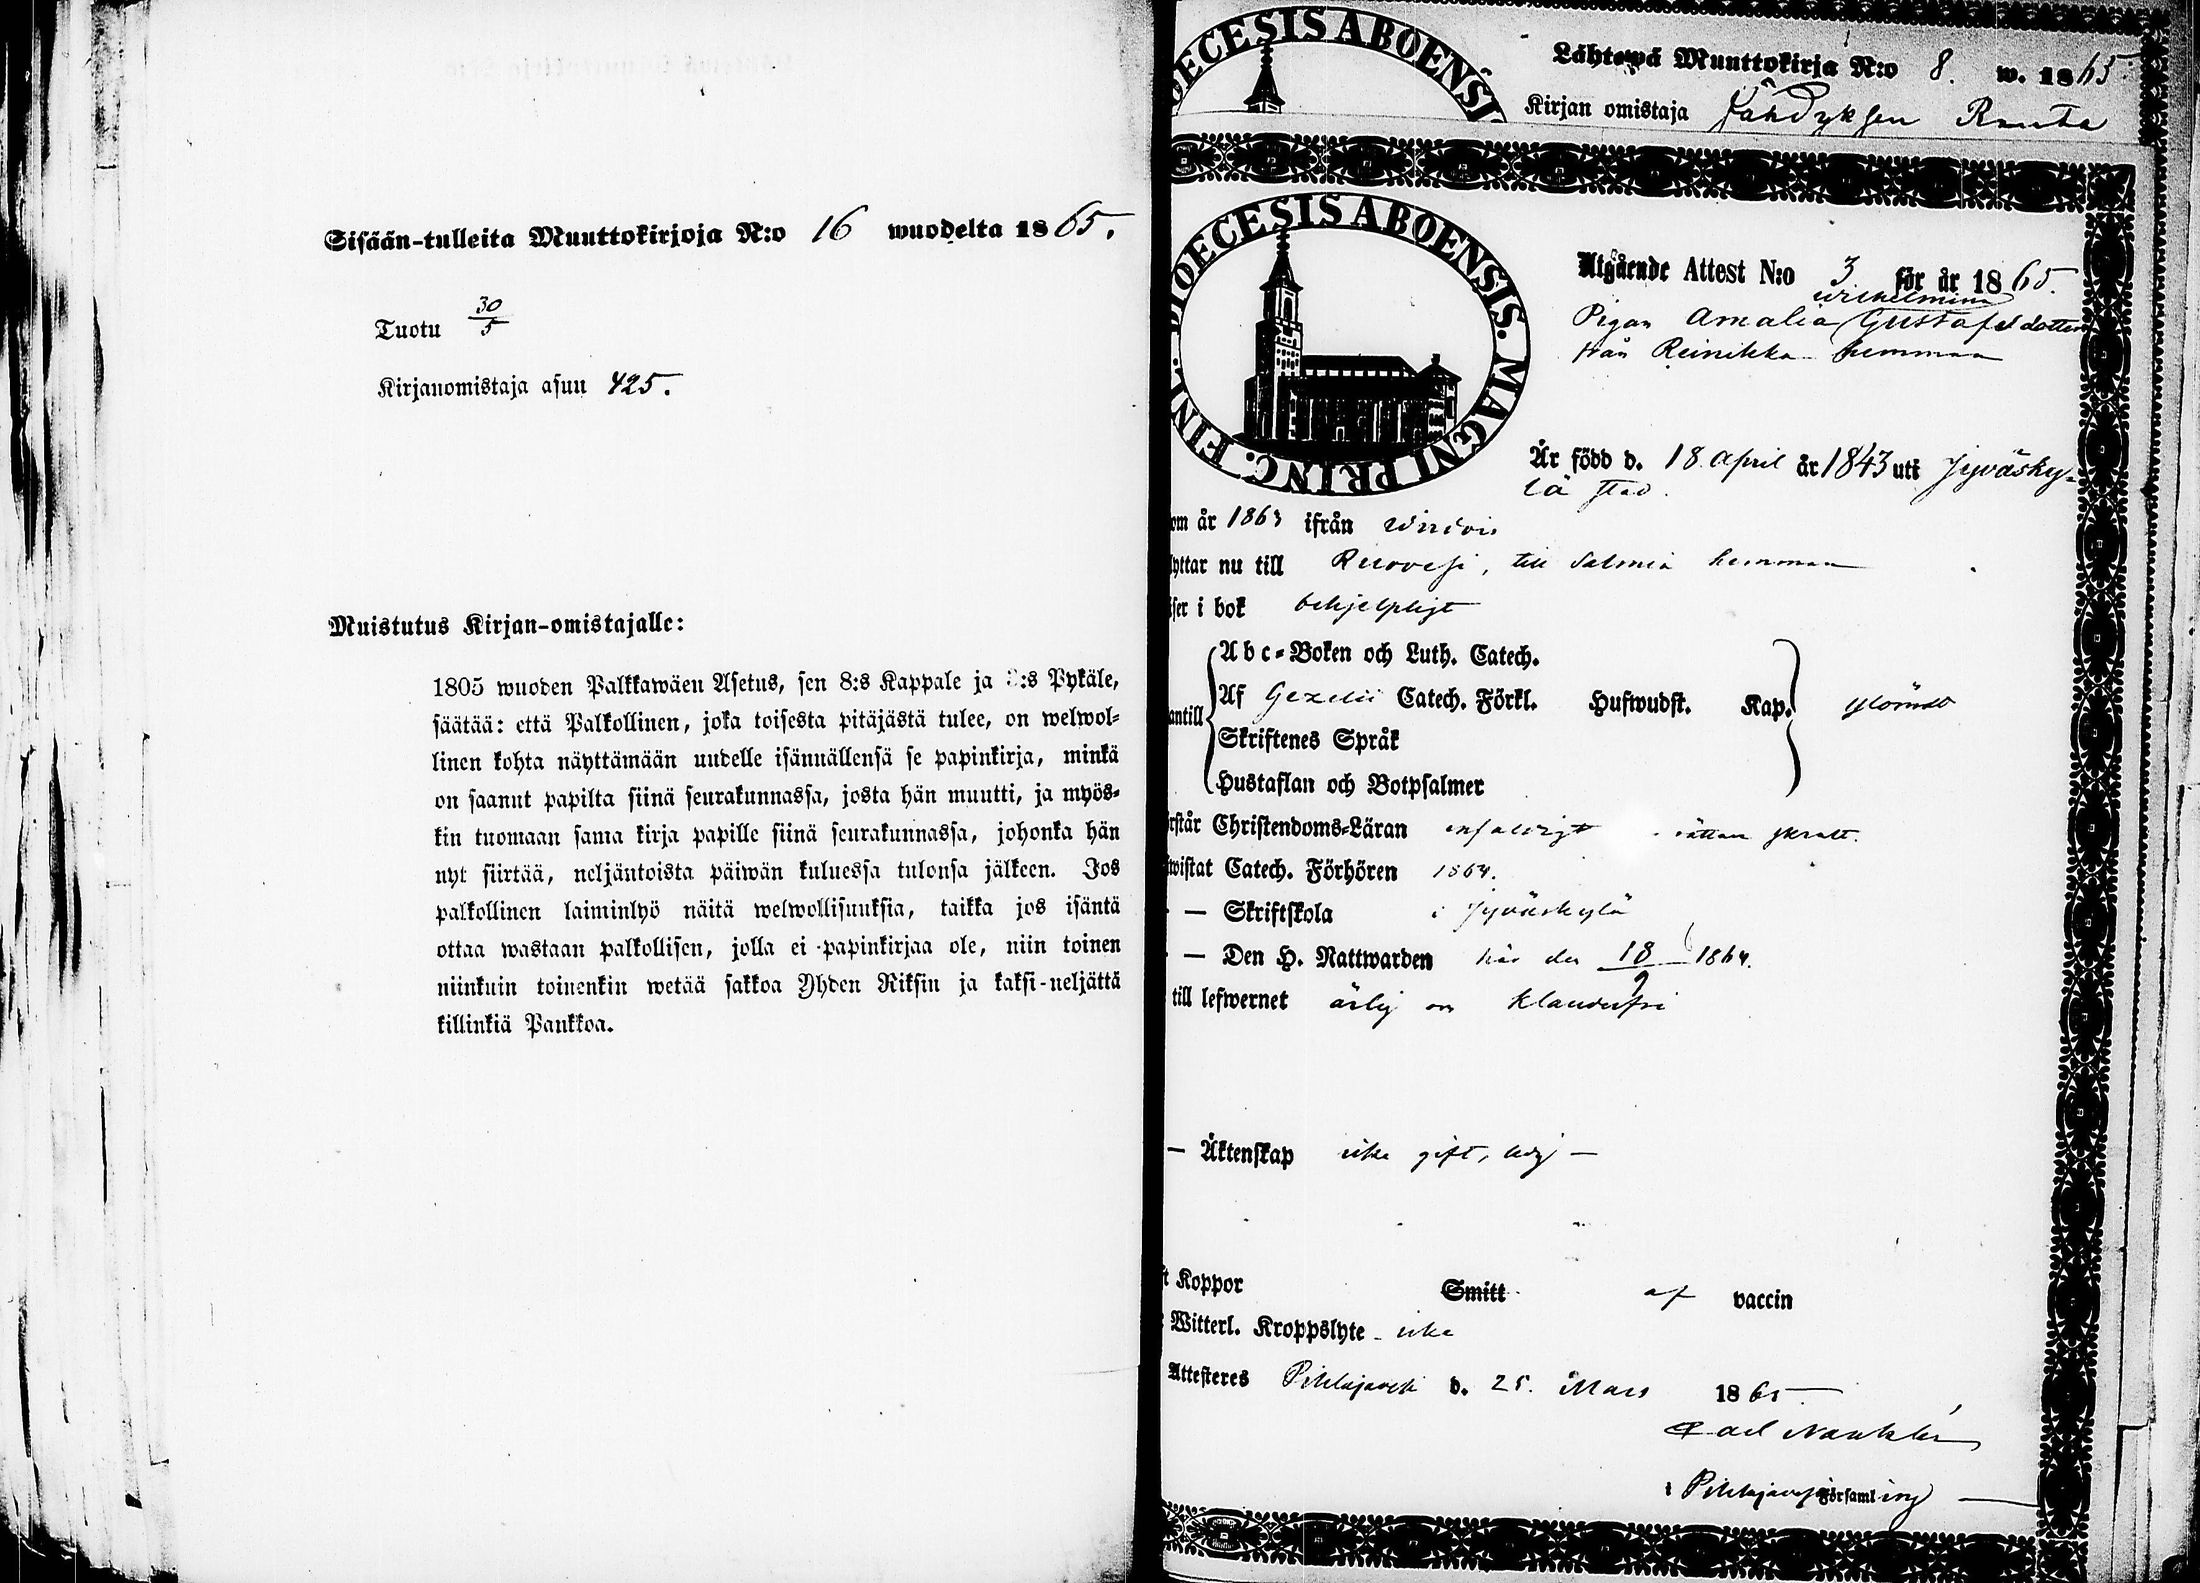 Sisään-tulleita Muuttokirjoja N:o 16 wuodelta 1865.
Tuotu 30/5
Kirjanomistaja asuu 425.
Muistutus Kirjan-omistajalle:
1805 wuoden Palkkawäen Asetus, sen 8:s Kappale ja :s Pykäle,
säätää: että Palkollinen, joka toisesta pitäjästä tulee, on welwol-
linen kohta näyttämään uudelle isännällensä se papinkirja, minkä
on saanut papilta siinä seurakunnassa, josta hän muutti, ja myös-
kin tuomaan sama kirja papille siinä seurakunnassa, johonka hän
nyt siirtää, neljäntoista päiwän kuluessa tulonsa jälkeen. Jos
palkollinen laiminlyö näitä welwollisuuksia, taikka jos isäntä
ottaa wastaan palkollisen, jolla ei papinkirjaa ole, niin toinen
niinkuin toinenkin wetää sakkoa Yhden Riksin ja kaksi-neljättä
killinkiä Pankkoa.
DIOECESIS ABOENSIS
Lähtewä Muuttokirja N:o 8. w. 1865
Kirjan omistaja
DIOECESIS ABOENSIS. MAGNI PRINC. FINL.
Utgående Attest N:o 3 för år 1865.
Wilhelmina
Pigan Amalia Gustafsdotter
från Reinikka hemman
Är född d. 18 April år 1843 uti Jyväsky-
lä stad.
om år 1863 ifrån Wirdois
yttar nu till Ruovesi, till Salmia hemman
iser i bok behjelpligt
Abc-Boken och Luth. Catech.
antill Af Gezelii Catech. Förkl. Hufwudst. Kap.
Skriftenes Språk
Hustaflan och Botpsalmer
rstår Christendoms-Läran enfaldigt
wistat Catech. Förhören 1864.
— Skriftskola i Jyväskylä
— Den H. Nattwarden här den 18/9 1864.
till lefwernet ärlig och klanderfri
— Äktenskap icke gift, ledig —
t Koppor Smitt af vaccin
Witterl. Kroppslyte icke
Attesteres Pihlajavesi d. 25. Mars 1865
Carl
i Pihlajavesi Församling